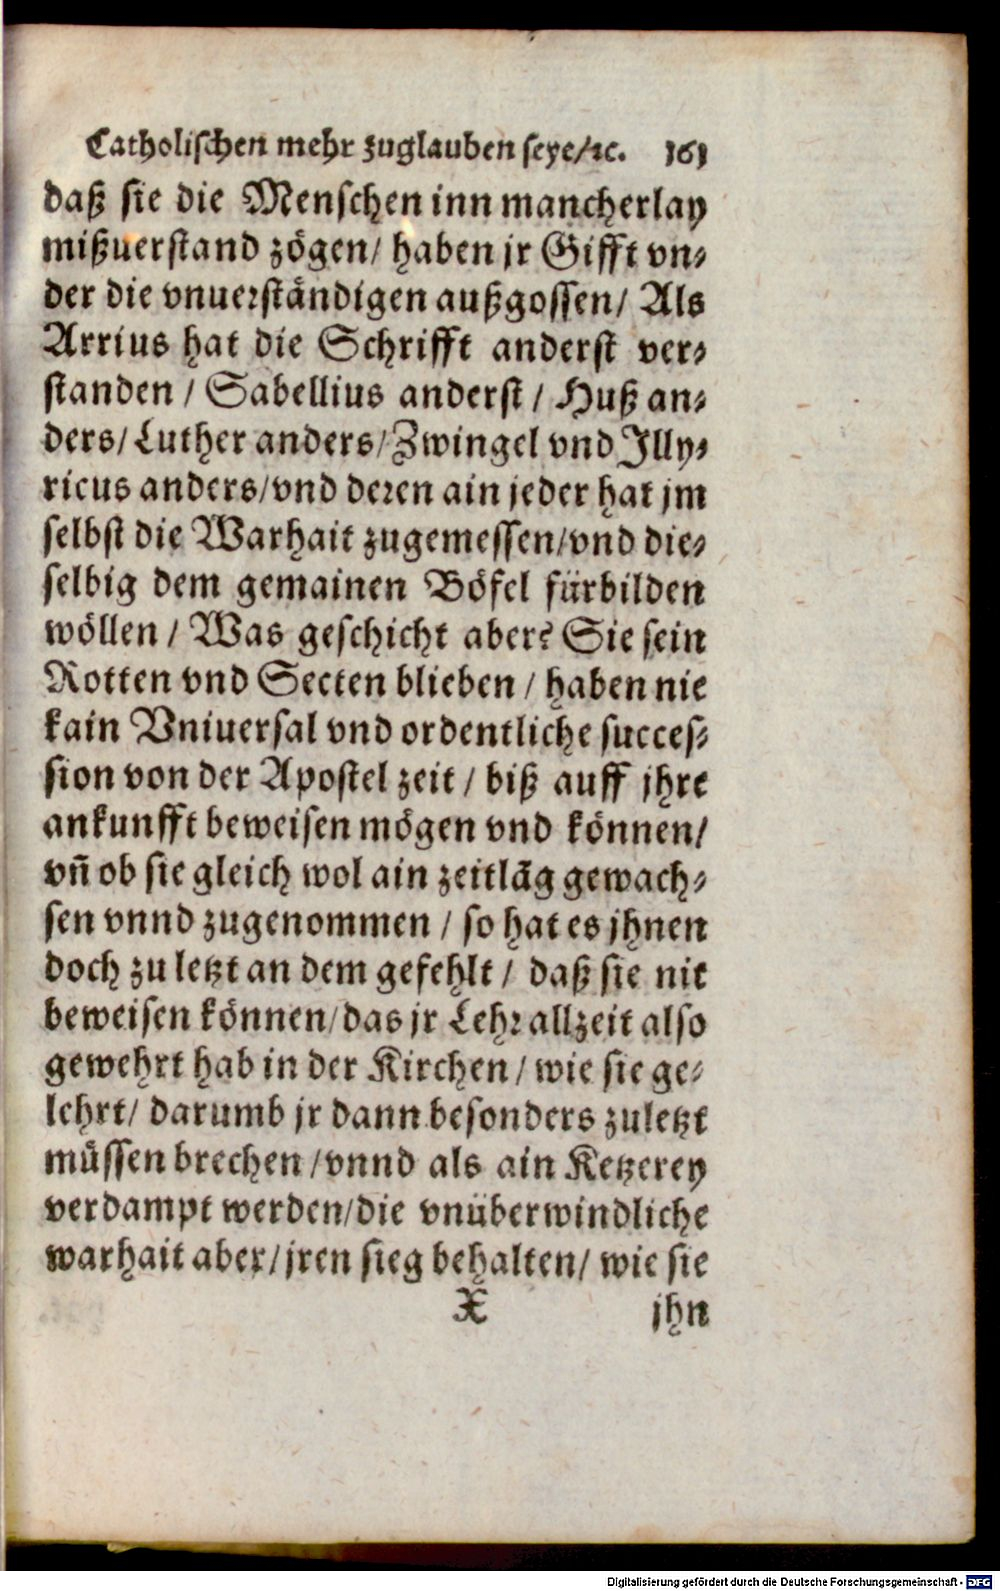 Catholischen mehr zuglauben seye/ꝛc. 161
daß sie die Menschen inn mancherlay
mißuerstand zögen/ haben jr Gifft vn-
der die vnuerständigen außgossen/ Als
Arrius hat die Schrifft anderst ver-
standen / Sabellius anderst / Huß an-
ders/ Luther anders/ Zwingel vnd Illy-
ricus anders/vnd deren ain jeder hat jm
selbst die Warhait zugemessen/vnd die-
selbig dem gemainen Böfel fürbilden
wöllen / Was geschicht aber? Sie sein
Rotten vnd Secten blieben / haben nie
kain Vniuersal vnd ordentliche succes-
sion von der Apostel zeit / biß auff jhre
ankunfft beweisen mögen vnd können/
vñ ob sie gleich wol ain zeitlãg gewach-
sen vnnd zugenommen / so hat es jhnen
doch zu letzt an dem gefehlt / daß sie nit
beweisen können/das jr Lehr allzeit also
gewehrt hab in der Kirchen / wie sie ge-
lehrt/ darumb jr dann besonders zuletzt
müssen brechen /vnnd als ain Ketzerey
verdampt werden/die vnüberwindliche
warhait aber/jren sieg behalten/ wie sie
X jhn
Digitalisierung gefördert durch die Deutsche Forschungsgemeinschaft - DFG